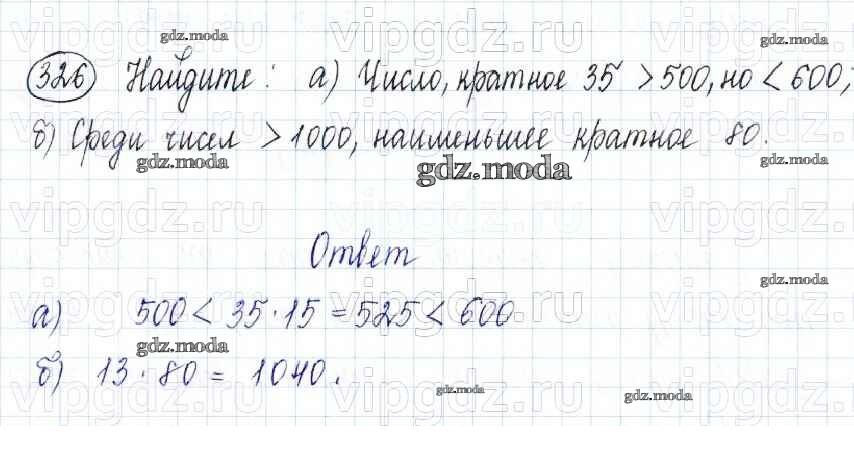 vipgdz.ru vipgdz.ru vipgdz.ru
gdz.moda gdz.moda
326 Найдите: а) Число, кратное 35 > 500, но < 600;
б) Среди чисел > 1000, наименьшее кратное 80.
gdz.moda gdz.moda gdz.moda
vipgdz.ru vipgdz.ru vipgdz.ru
Ответ
gdz.moda
vipgdz.ru vipgdz.ru vipgdz.ru
а) 500 < 35 · 15 = 525 < 600
gdz.moda
б) 13 · 80 = 1040.
gdz.moda gdz.moda
vipgdz.ru vipgdz.ru vipgdz.ru